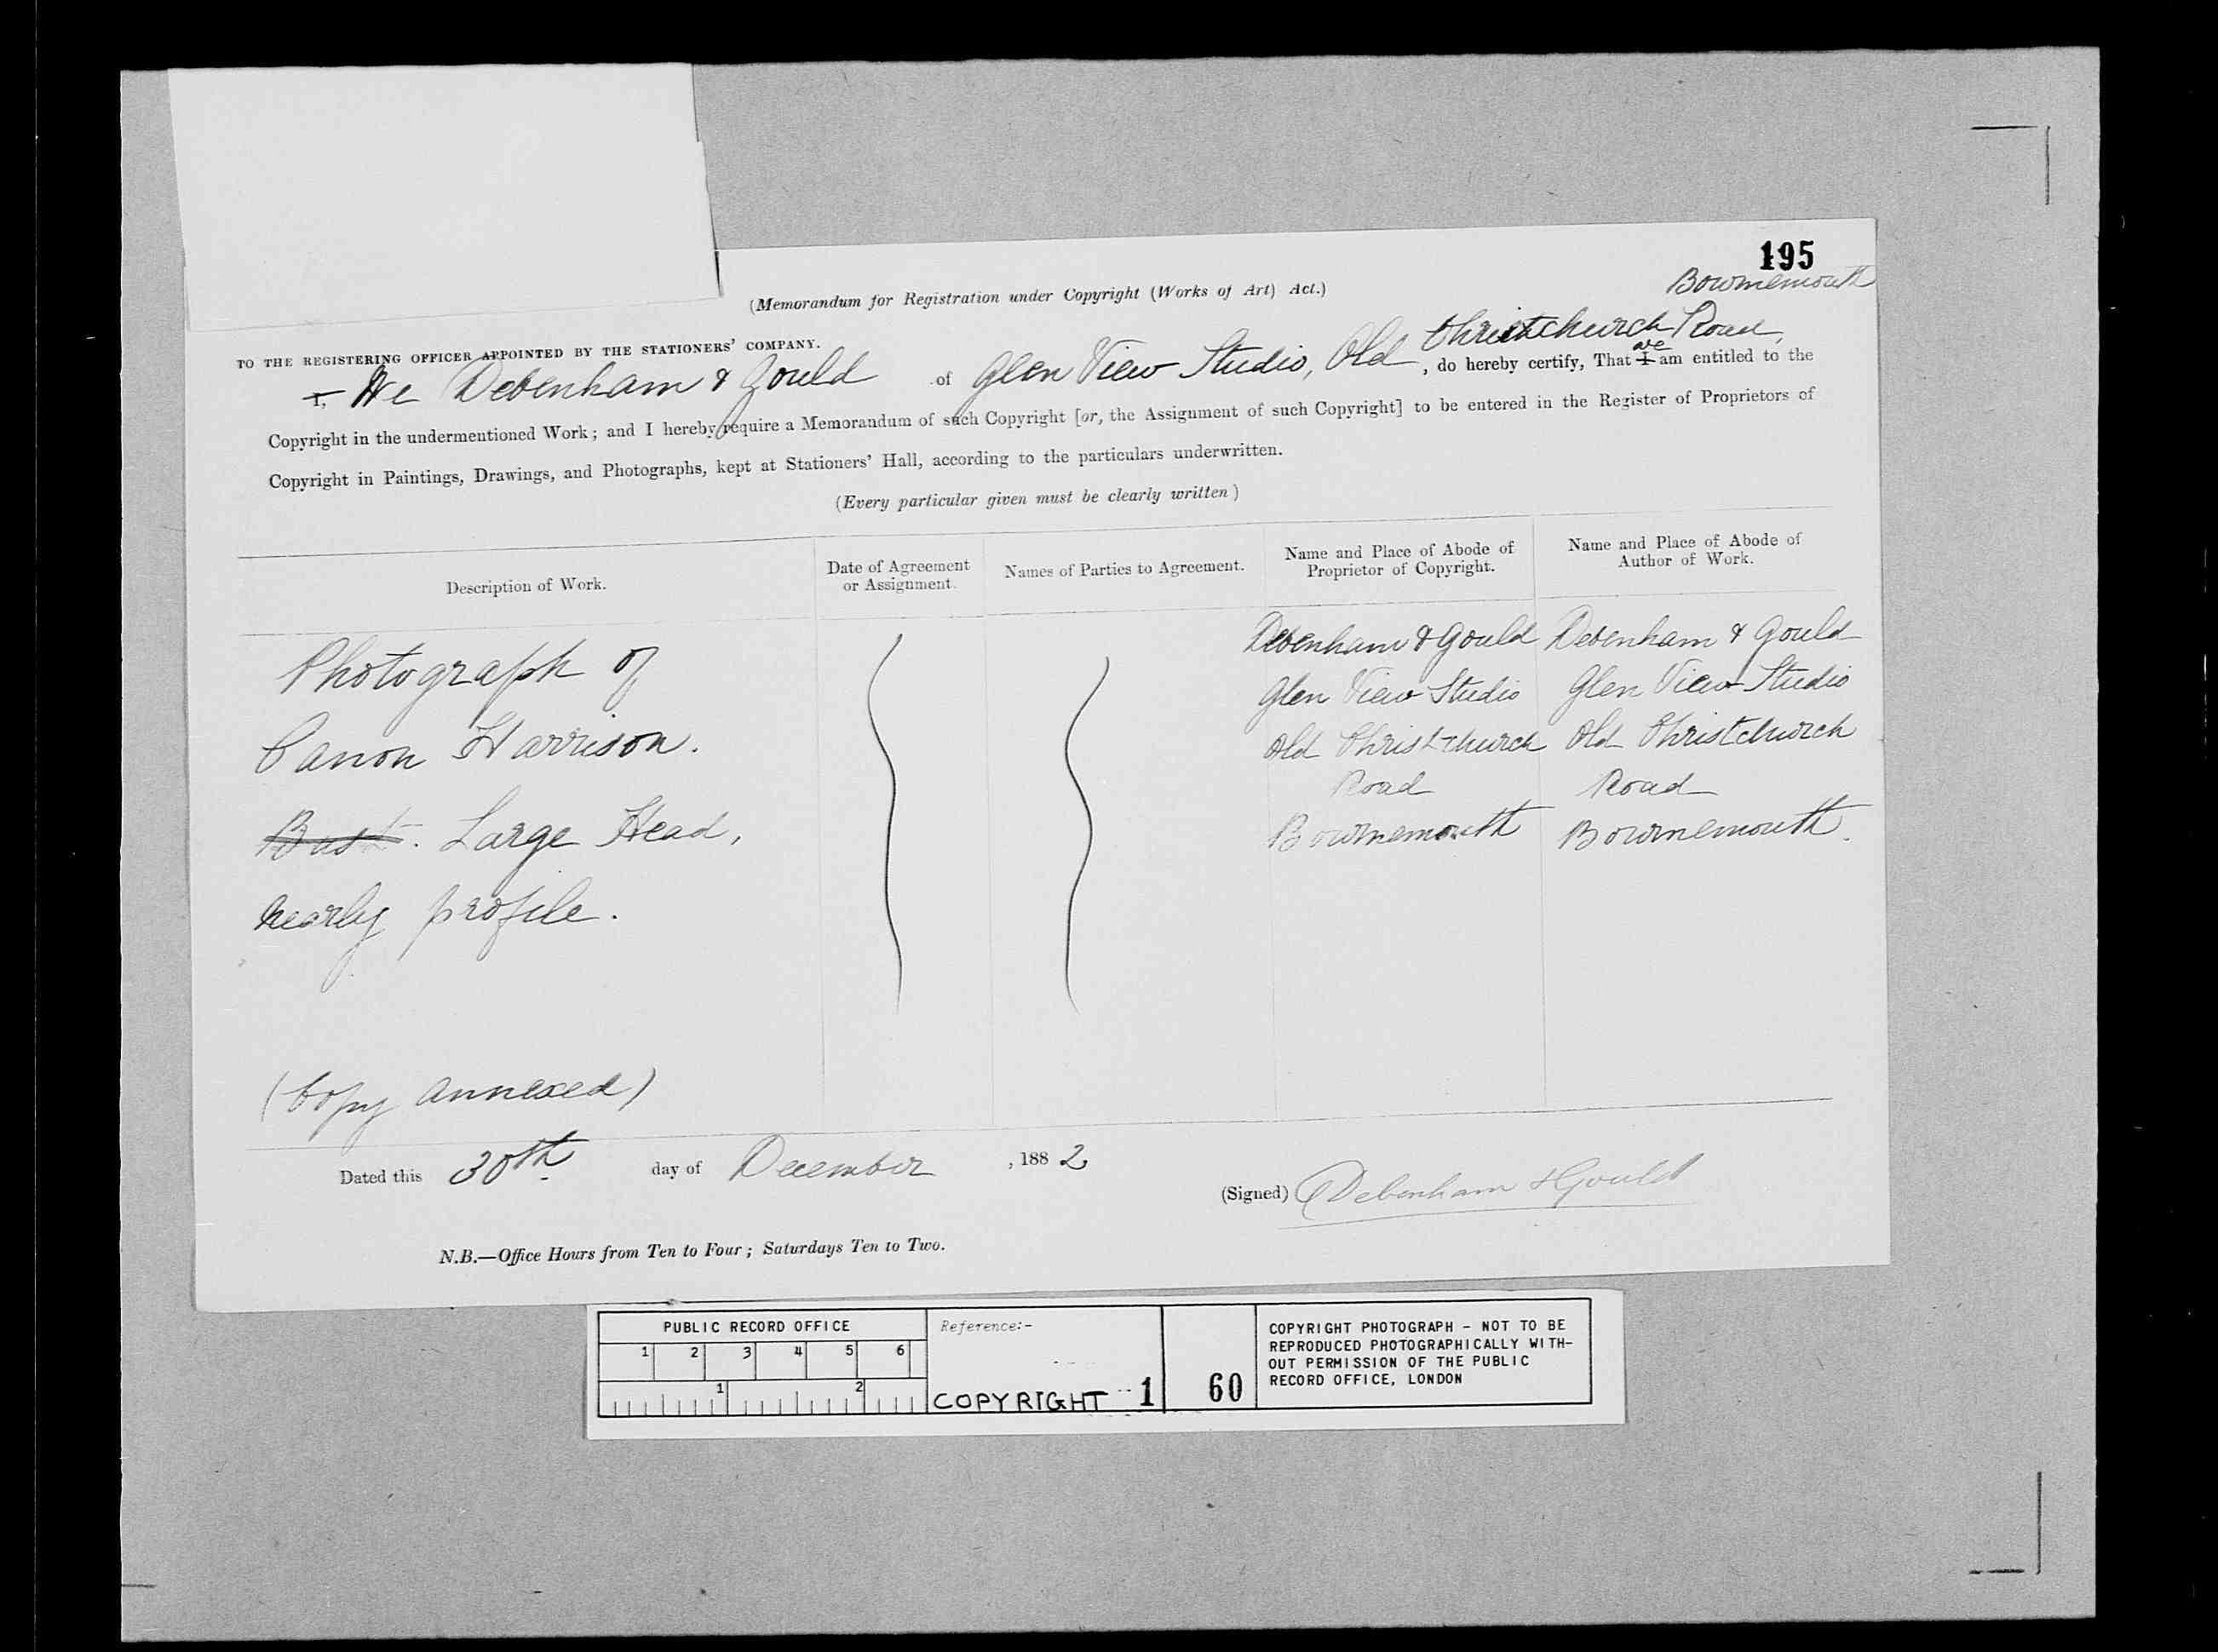 195
Bournemouth
(Memorandum for Registration under Copyright (Works of Art) Act.)
TO THE REGISTERING OFFICER APPOINTED BY THE STATIONERS' COMPANY.
Christchurch Road,
I, We Debenham & Gould of Glen View Studio, Old , do hereby certify, That I we am entitled to the
Copyright in the undermentioned Work; and I hereby require a Memorandum of such Copyright [or, the Assignment of such Copyright] to be entered in the Register of Proprietors of
Copyright in Paintings, Drawings, and Photographs, kept at Stationers' Hall, according to the particulars underwritten.
(Every particular given must be clearly written)
Description of Work.
Date of Agreement
or Assignment.
Names of Parties to Agreement.
Name and Place of Abode of
Proprietor of Copyright.
Name and Place of Abode of
Author of Work.
Photograph of
Canon Harrison.
Bust. Large Head,
nearly profile.
(Copy annexed)
Debenham & Gould
Glen View Studio
Old Christchurch
Road
Bournemouth
Debenham & Gould
Glen View Studio
Old Christchurch
Road
Bournemouth.
Dated this 30th day of December , 1882
(Signed) Debenham & Gould
N.B.—Office Hours from Ten to Four; Saturdays Ten to Two.
PUBLIC RECORD OFFICE
1 2 3 4 5 6
1 2
Reference:-
COPYRIGHT 1 60
COPYRIGHT PHOTOGRAPH - NOT TO BE
REPRODUCED PHOTOGRAPHICALLY WITH-
OUT PERMISSION OF THE PUBLIC
RECORD OFFICE, LONDON